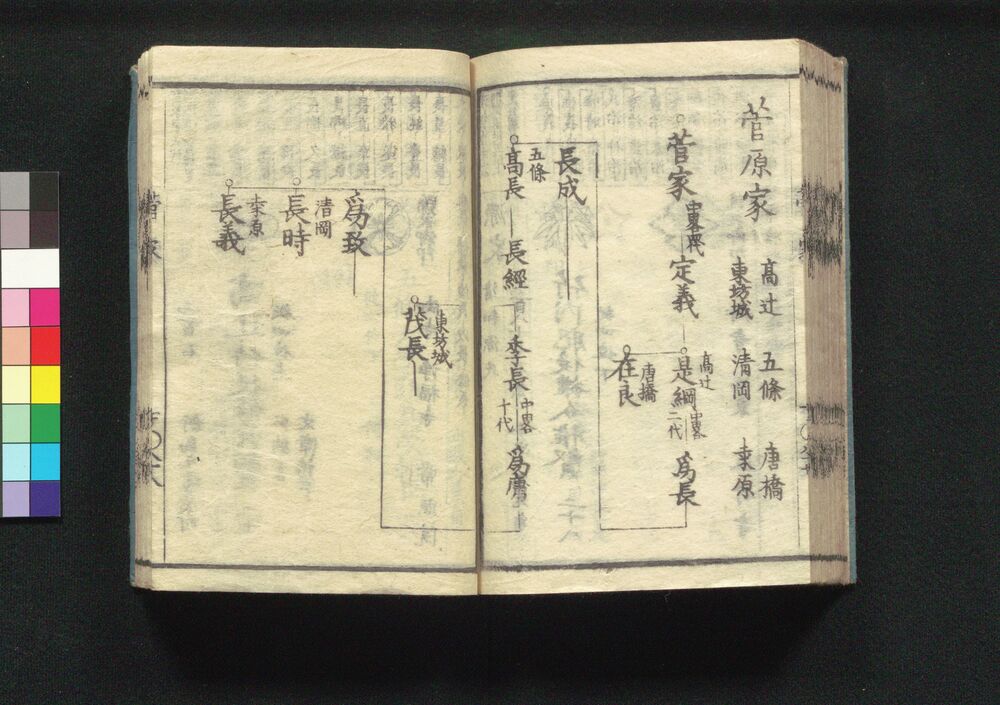 菅原家
高辻 五條 唐橋
東坊城 清岡 桒原
菅家 中畧
定義
是綱 高辻
中畧
二代
為長
在良 唐橋
長成
高長 五條
長經
季長
中畧
十代
為庸
茂長 東坊城
為致
長時 清岡
長義 桒原